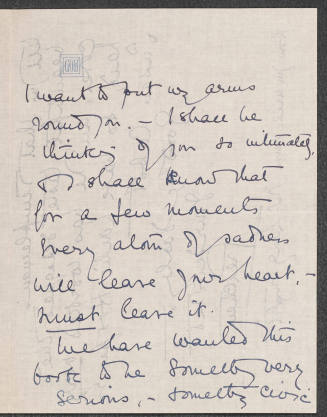 I want to put my arms
round you. – I shall be
thinking of you so intimately,
& I shall know that
for a few moments
every atom of sadness
will leave your heart, –
must leave it.
We have wanted this
book to be something very
serious, – something civic